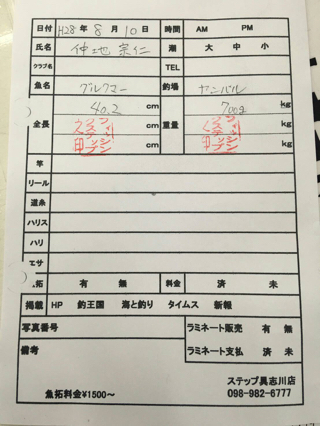 日付 H28年 8月 10日 時間 AM PM
氏名 仲地 宗仁 潮 大 中 小
クラブ名 TEL
魚名 グルクマー 釣場 ヤンバル
40.2 cm 700g kg
全長 cm 重量 kg
cm kg
竿
リール
道糸
ハリス
ハリ
エサ
拓 有 無 料金 済 未
掲載 HP 釣王国 海と釣り タイムス 新報
写真番号 ラミネート販売 有 無
備考 ラミネート支払 済 未
ステップ具志川店
魚拓料金¥1500～ 098-982-6777